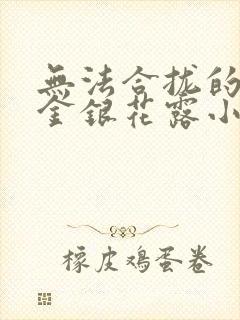 無法合拢的
金銀花露小
橡皮鸡蛋卷